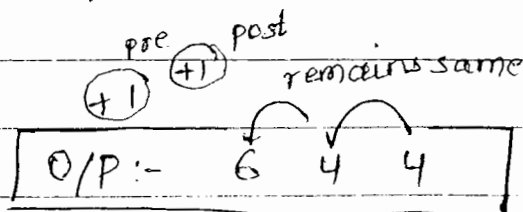 pre post
+1 +1 remains same
O/P :- 6 4 4